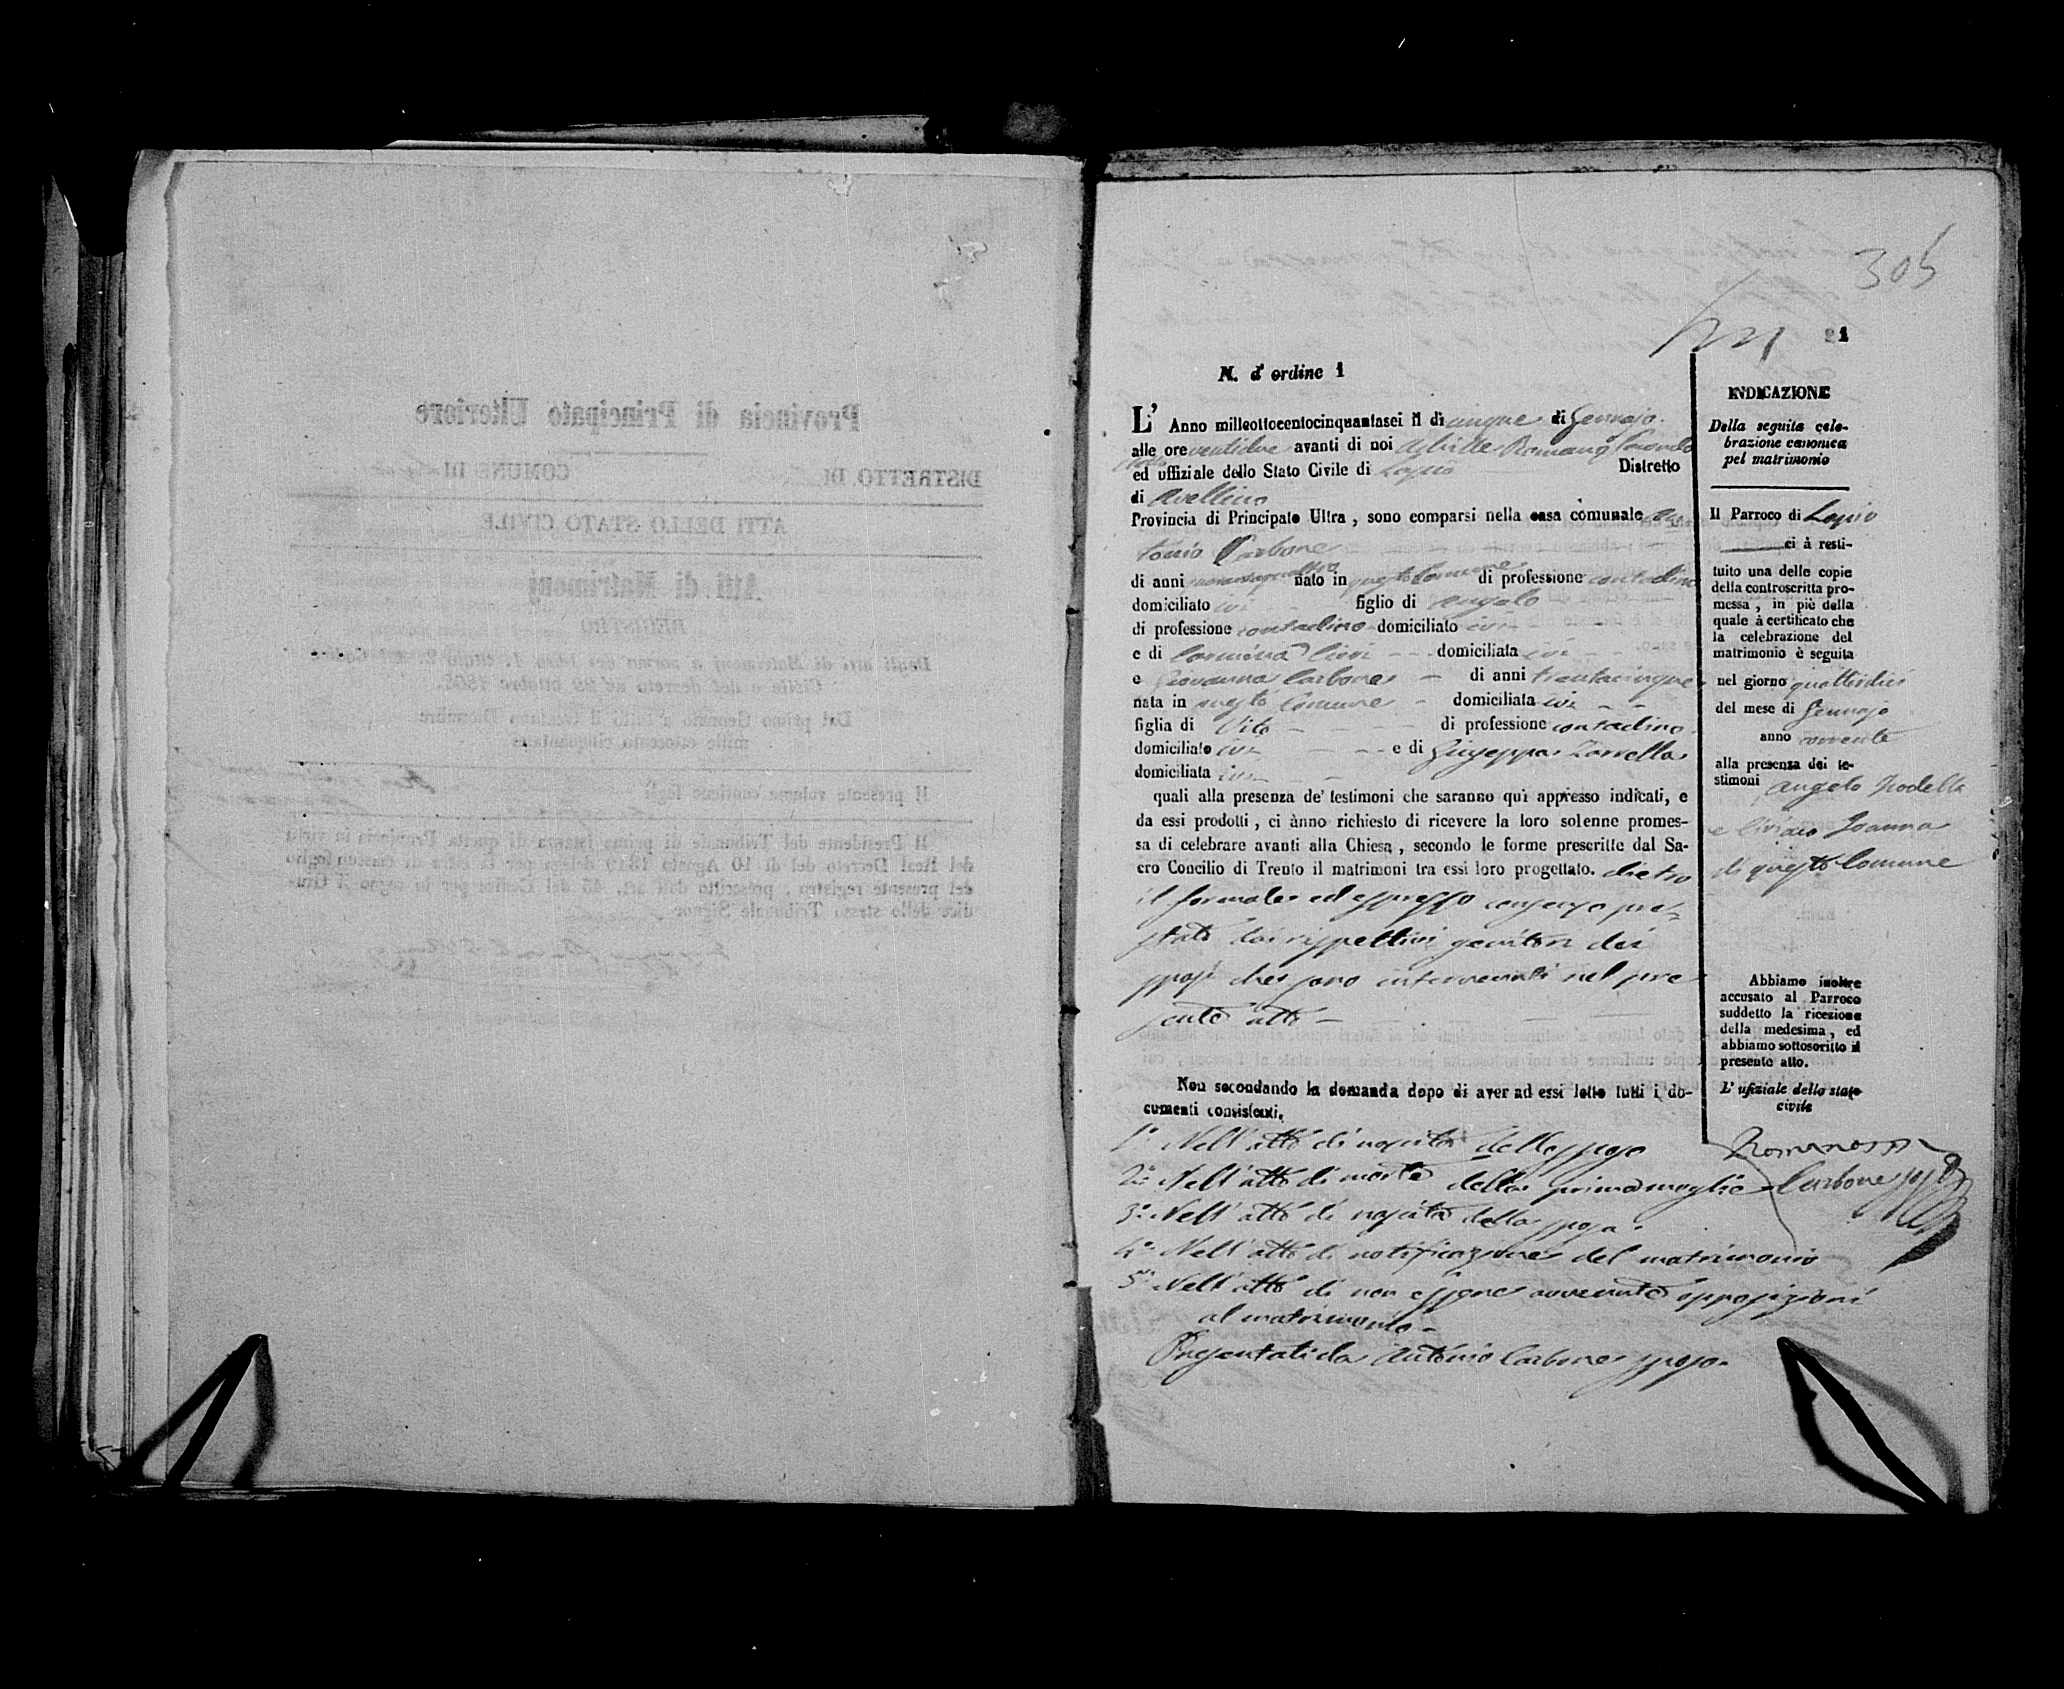 305
21
N. d'ordine 1
L'Anno milleottocentocinquantasei il dì cinque di Gennajo
alle ore ventidue avanti di noi Achille Romano Secondo
Eletto
ed uffiziale dello Stato Civile di Lapio Distretto
di Avellino
Provincia di Principato Ultra, sono comparsi nella casa comunale An
tonio Carbone
di anni nato in questo Comune di professione contadino
domiciliato ivi figlio di Angelo
di professione contadino domiciliato ivi
e di Carmina domiciliata ivi
e Giovanna Carbone di anni trentacinque
nata in questo Comune domiciliata ivi
figlia di Vito di professione contadino
domiciliato ivi e di Giuseppa Zarrella
domiciliata ivi
quali alla presenza de' testimoni che saranno qui appresso indicati, e
da essi prodotti, ci ànno richiesto di ricevere la loro solenne promes-
sa di celebrare avanti alla Chiesa, secondo le forme prescritte dal Sa-
cro Concilio di Trento il matrimoni tra essi loro progettato. dietro
il formale ed espresso consenzo pre-
stato dai rispettivi genitori dei
sposi che sono intervenuti nel pre
sente atto
Noi secondando la domanda dopo di aver ad essi letto tutti i do-
cumenti consistenti.
1° Nell'atto di nascita dello sposo
2° Nell'atto di morte della prima moglie
3° Nell'atto di nascita della sposa.
4° Nell'atto di notificazione del matrimonio
5° Nell'atto di non essere avvenute opposizioni
al matrimonio
Presentati da Antonio Carbone sposo.
INDICAZIONE
Della seguita cele-
brazione canonica
pel matrimonio
Il Parroco di Lapio
ci à resti-
tuito una delle copie
della controscritta pro-
messa, in piè della
quale à certificato che
la celebrazione del
matrimonio è seguita
nel giorno quattordici
del mese di Gennajo
anno corrente
alla presenza dei te-
stimoni Angelo
e Joanna
di questo Comune
Abbiamo inoltre
accusato al Parroco
suddetto la ricezione
della medesima, ed
abbiamo sottoscritto il
presente atto.
L'ufiziale dello stato
civile
Romano
Carbone
Provincia di Principato Ulteriore
DISTRETTO DI COMUNE DI
ATTI DELLO STATO CIVILE
Atti di Matrimonj
REGISTRO
Il presente volume contiene fogli
Il Presidente del Tribunale di prima istanza di questa Provincia in virtù
del Real Decreto del dì 10 Agosto 1819 delega per la cifra di ciascun foglio
del presente registro, prescritto dall'art. 45 del Codice per lo regno il Giu-
dice dello stesso Tribunale Signor